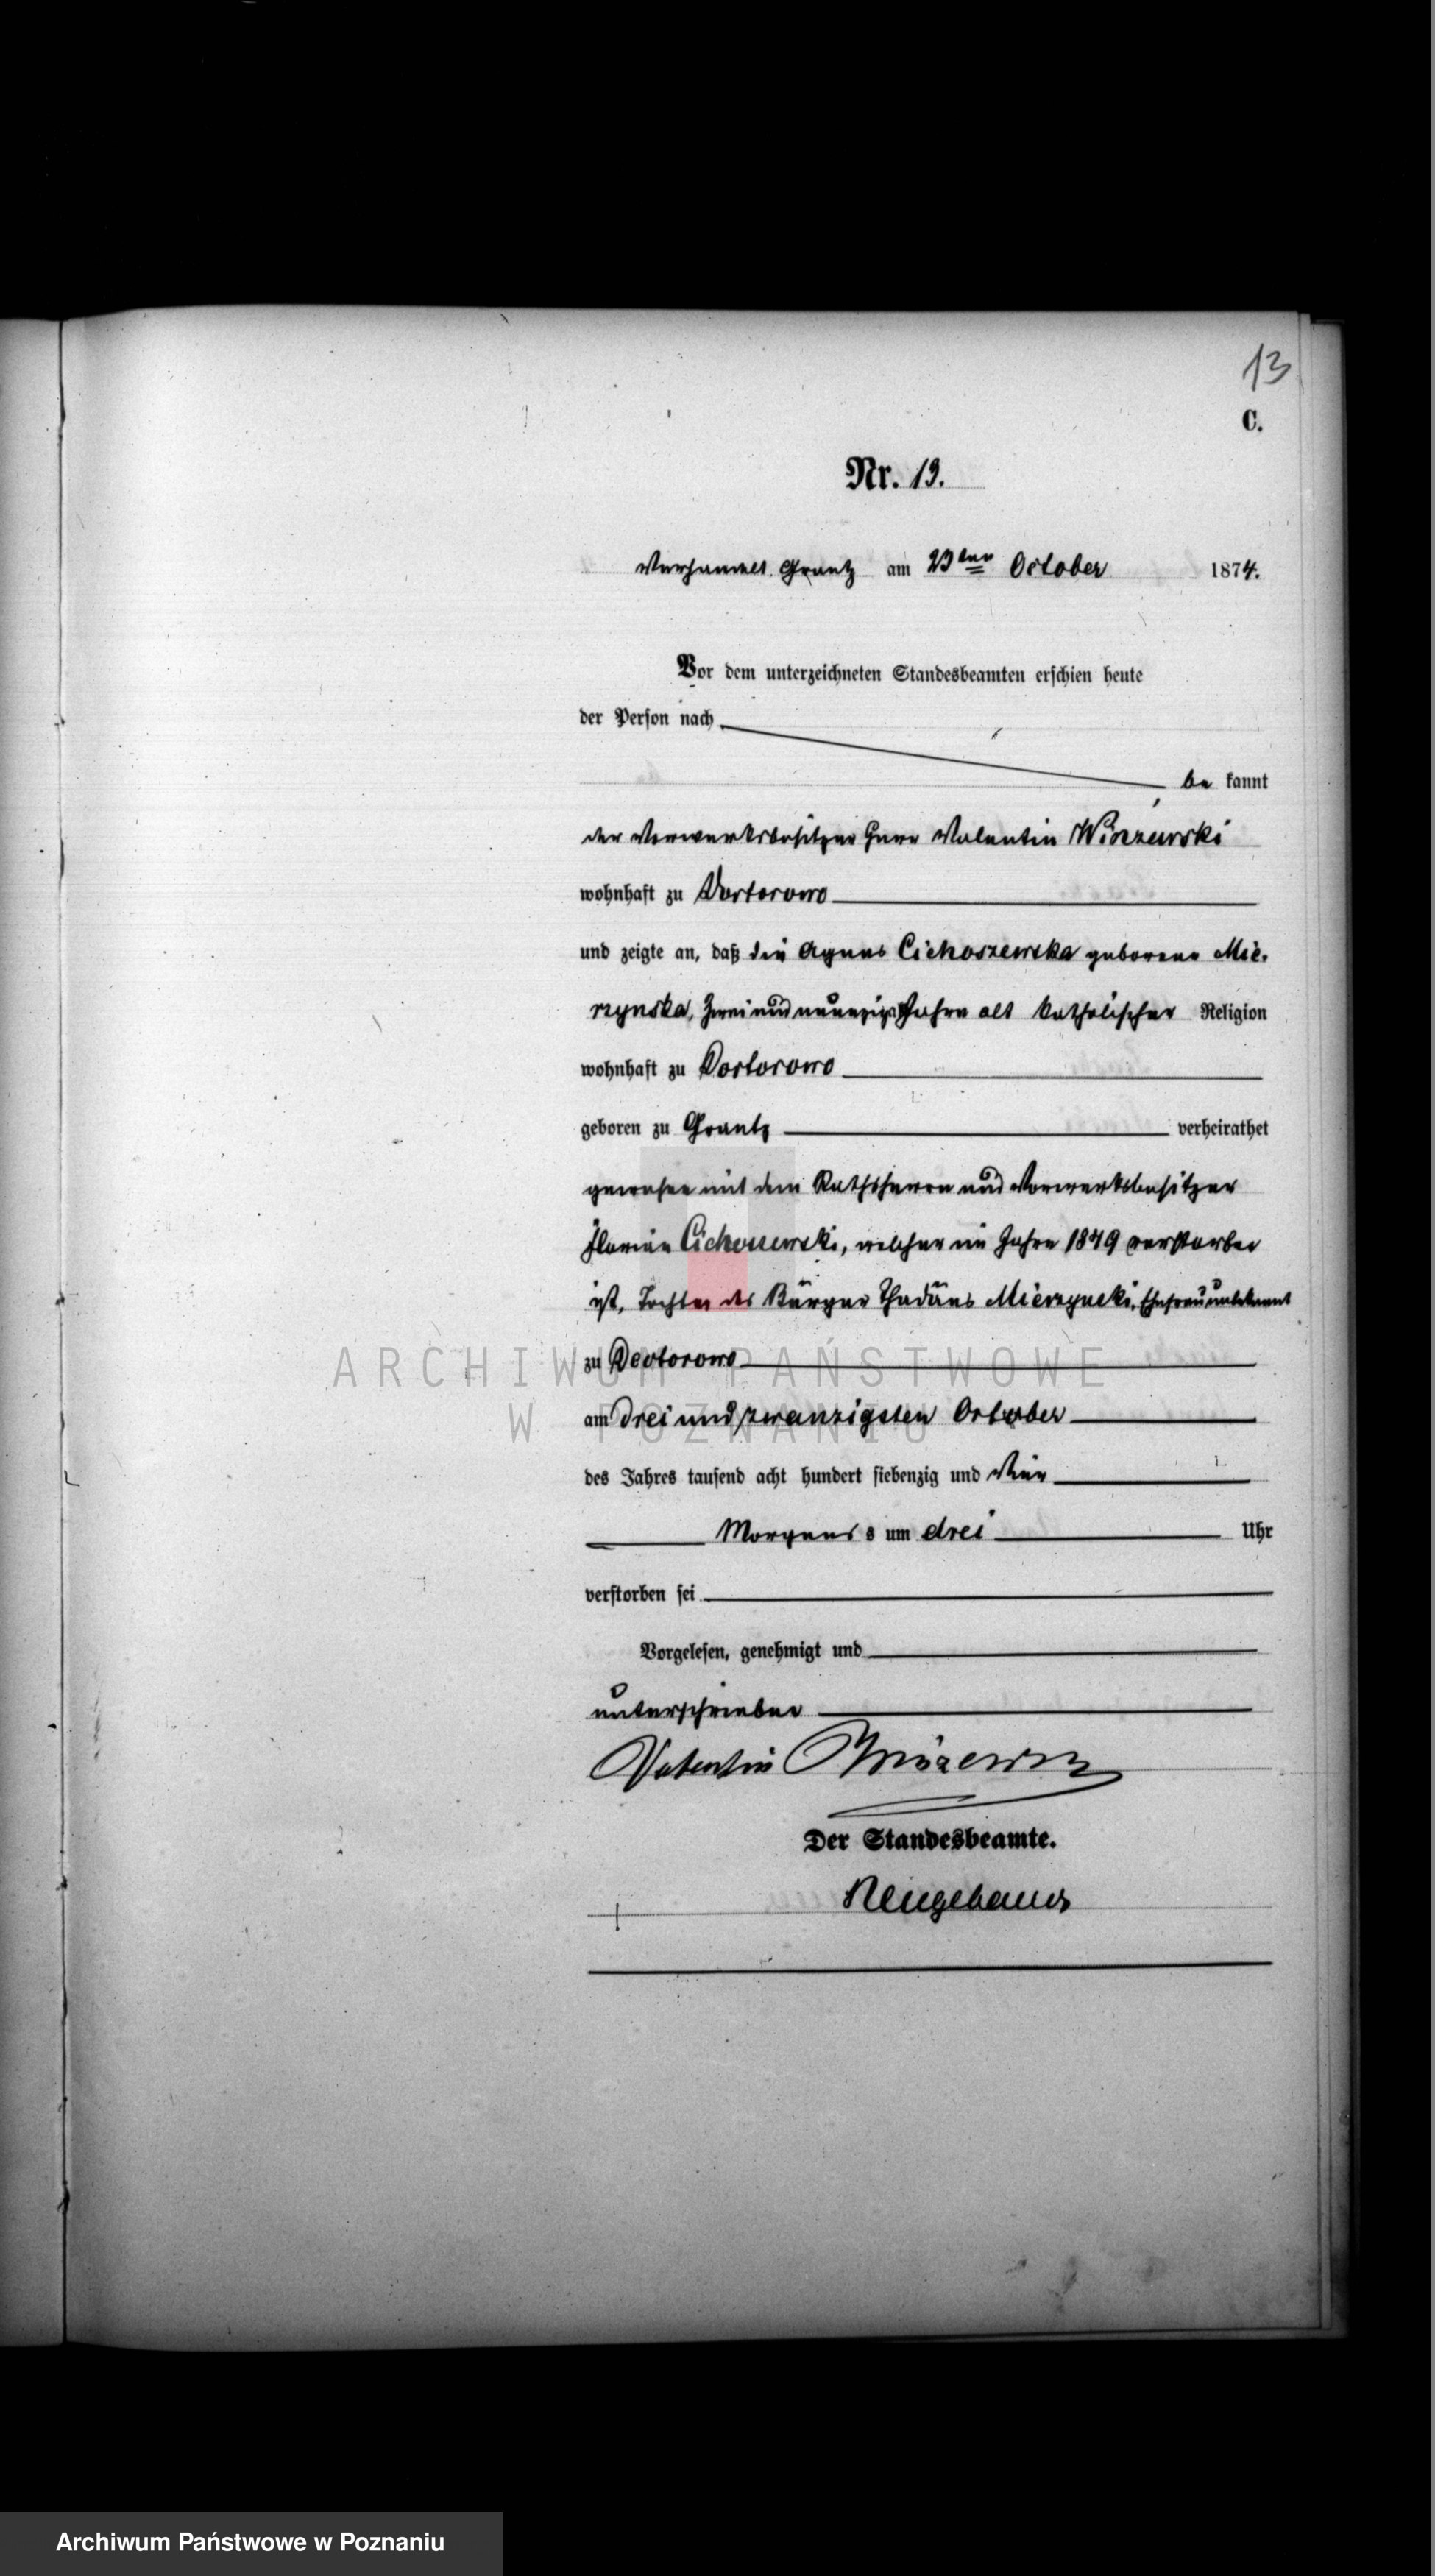 13
C.
Nr. 13.
Verhandelt Graetz am 23ten October 1874.
Vor dem unterzeichneten Standesbeamten erschien heute
der Person nach
be kannt
der Vorwerksbesitzer Herr Valentin
wohnhaft zu Doctorowo
und zeigte an, daß die Agnes Cichoszewska geborene Mie-
rzynska, zwei und neunzig Jahre alt katholischer Religion
wohnhaft zu Doctorowo
geboren zu Graetz verheirathet
gewesen mit dem Rathsherrn und Vorwerksbesitzer
Florian Cichoszewski, welcher im Jahre 1849 verstorben
ist, Tochter des Bürger Thadäus Mierzynski, Ehefrau unbekannt
zu Doctorowo
am drei und zwanzigsten October
des Jahres tausend acht hundert siebenzig und vier
Morgens s um drei Uhr
verstorben sei
Vorgelesen, genehmigt und
unterschrieben
Valentin
Der Standesbeamte.
Neugebauer
ARCHIWUM PAŃSTWOWE
W POZNANIU
Archiwum Państwowe w Poznaniu